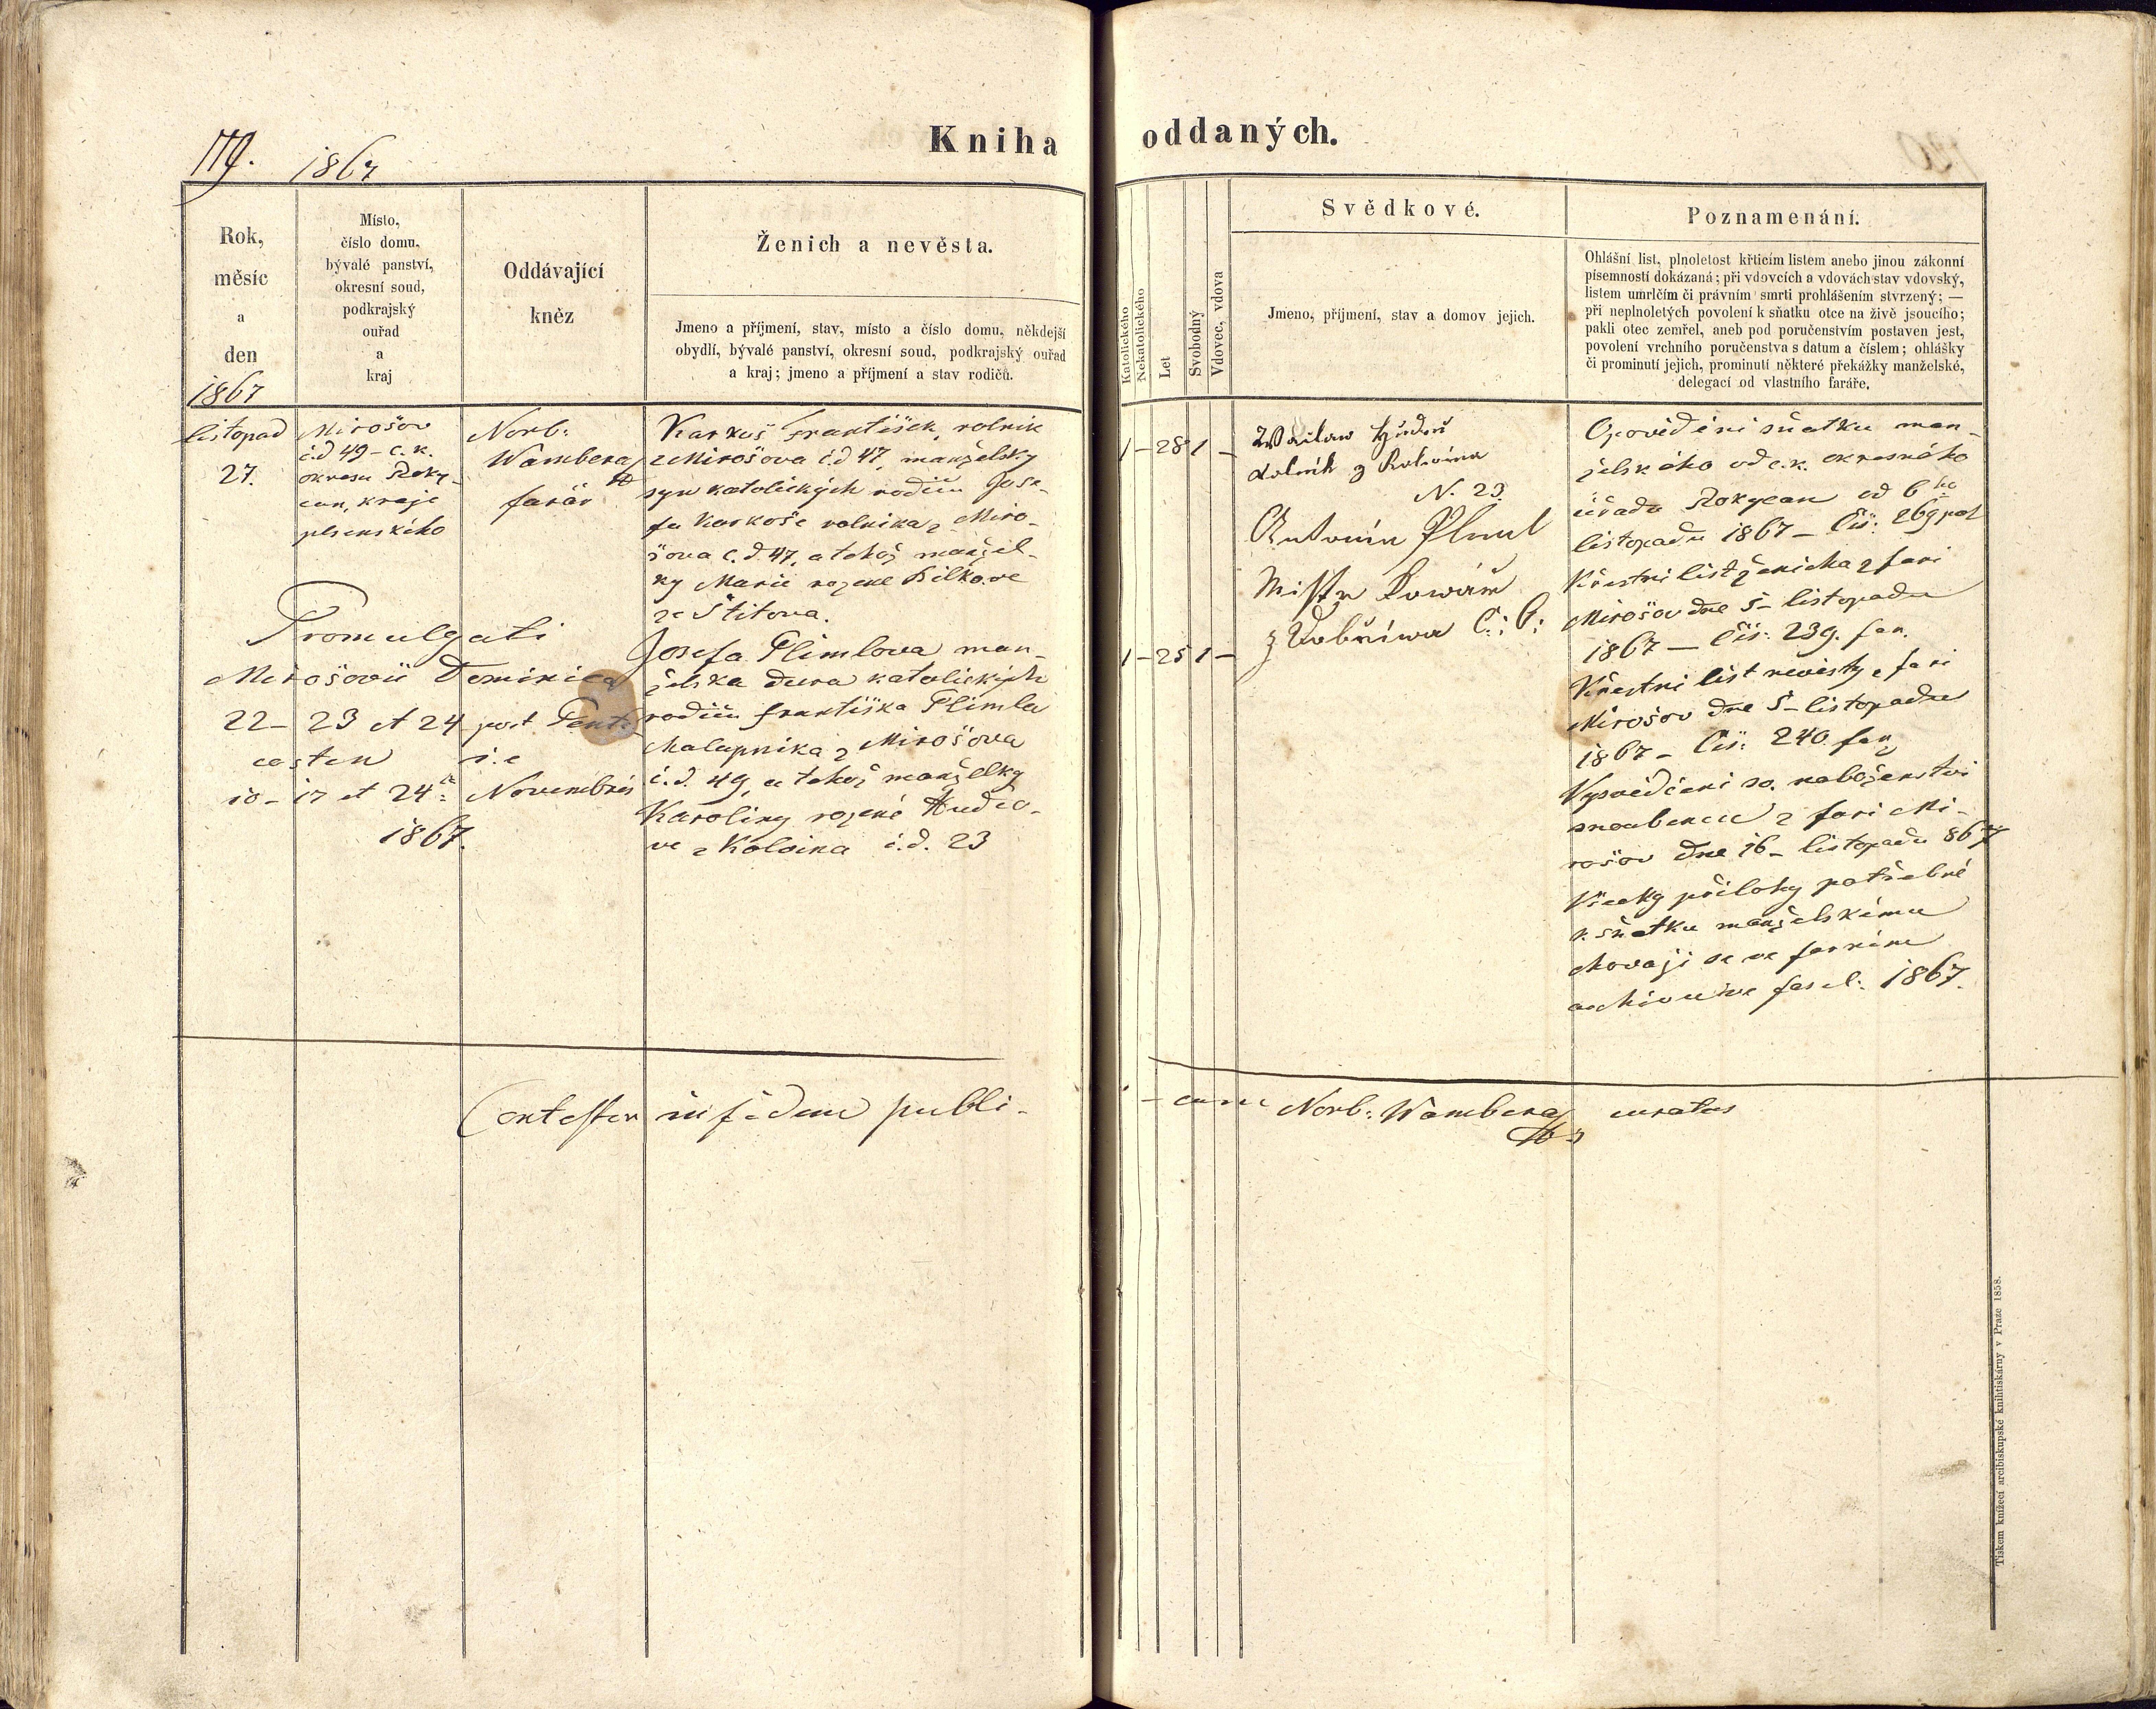 119. 1867
Kniha oddaných.
Rok,
měsíc
a
den
1867
Místo,
číslo domu,
bývalé panství,
okresní soud,
podkrajský
ouřad
a
kraj
Oddávající
kněz
Ženich a nevěsta.
Jmeno a příjmení, stav, místo a číslo domu, někdejší
obydlí, bývalé panství, okresní soud, podkrajský ouřad
a kraj; jmeno a příjmení a stav rodičů.
Katolického
Nekatolického
Let
Svobodný
Vdovec, vdova
Svědkové.
Jmeno, příjmení, stav a domov jejich.
Poznamenání.
Ohlášní list, plnoletost křticím listem anebo jinou zákonní
písemností dokázaná; při vdovcích a vdovách stav vdovský,
listem umrlčím či právním smrti prohlášením stvrzený; —
při neplnoletých povolení k sňatku otce na živě jsoucího;
pakli otec zemřel, aneb pod poručenstvím postaven jest,
povolení vrchního poručenstva s datum a číslem; ohlášky
či prominutí jejich, prominutí některé překážky manželské,
delegací od vlastního faráře.
listopad
27.
Mirošov
č.d 49 – c. k.
okresu Roky-
can, kraje
plsenského
Norb:
Wambera
farář
Karkoš František, rolnik
z Mirošova č.d 47, manželsky
syn katolických rodičů Jose-
fa Karkoše rolnika z Miro-
šova č.d. 47, a tehož manžel-
ky Marie rozené Bilkove
ze Štitova.
Josefa Plimlova man-
želska dcera katolickych
rodičů Františka Plimla
chalupnika z Mirošova
č.d. 49, a tehož manželky
Karoliny rozené Hudco-
ve z Kolvina č.d. 23
Promulgati
Mirošovii Dominica
22– 23 et 24 post Pente
costen i.e
10– 17 et 24 Novembris
1867.
1 – 28 1 –
1 – 25 1 –
Wácław
rolník z Kolwína
N. 23.
Antonín Plml
Mistr Kowář
z Dobříwa Č: 6:
Opovědění sňatku man-
želského od c.k. okresného
úřadu Rokycan od 6ho
listopadu 1867 – Čís: 269 pol
Křestni list ženicha z fari
Mirošov dne 5– listopadu
1867 — Čís: 239. far.
Křestni list nevěsty z fari
Mirošov dne 5– listopadu
1867 – Čís: 240. far
Vysvědčeni sv. naboženstvi
snoubenců z fari Mi-
rošov dne 16– listopadu 867
Všecky přilohy potřebné
k sňatku manželskému
chovaji se ve farnim
archivu ve fascl: 1867.
Contestor in fidem publi-
– cam Norb: Wambera curatus
Tiskem knížecí arcibiskupské knihtiskárny v Praze 1858.